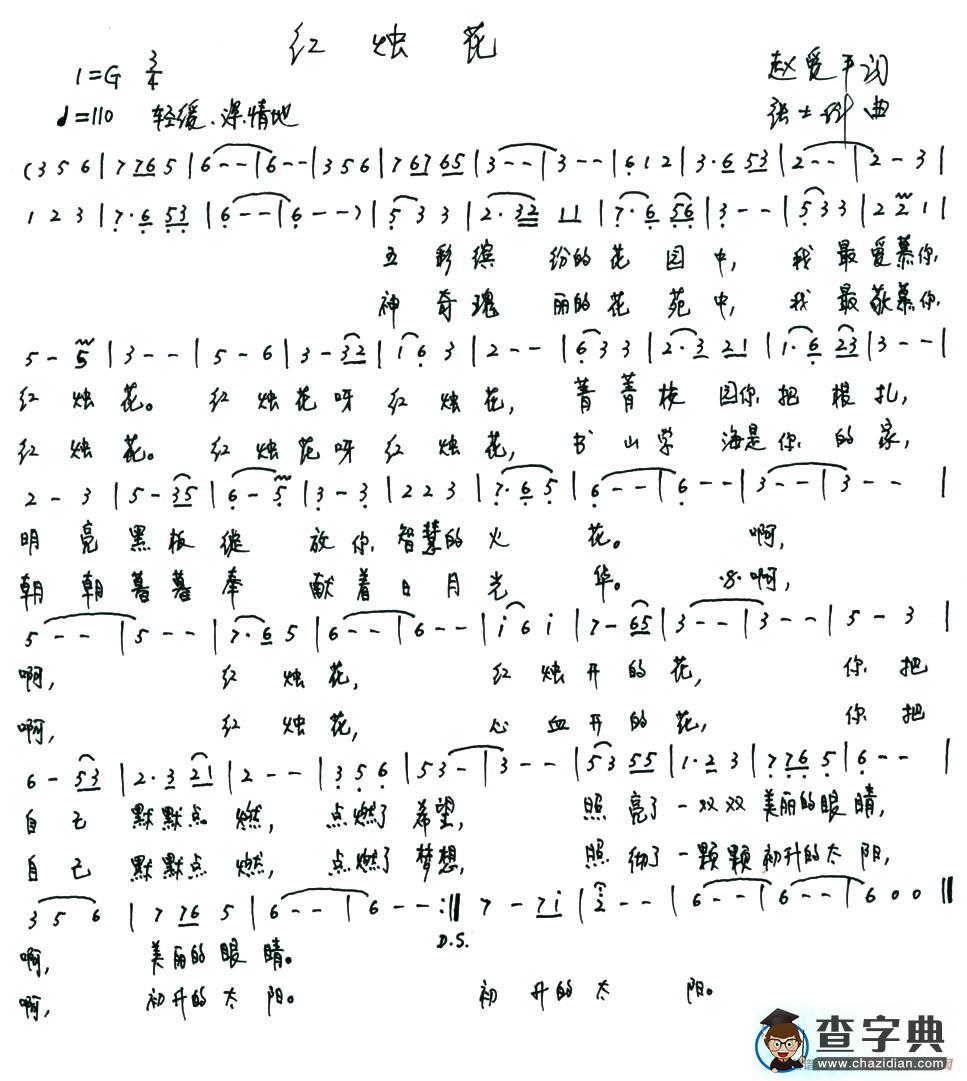 红烛花
1=G 3/4
赵爱平词
♩=110 轻缓、深情地
张士科 曲
(3 5 6 | 7 76 5 | 6 - - | 6 - - | 3 5 6 | 7 67 65 | 3 - - | 3 - - | 6 1 2 | 3·6 53 | 2 - - | 2 - 3 |
1 2 3 | 7·6 53 | 6 - - | 6 - -) | 5 3 3 | 2·32 11 | 7·6 56 | 3 - - | 5 3 3 | 2 2 1 |
五彩缤 纷的花园中, 我最爱慕你.
神奇瑰 丽的花苑中, 我最敬慕你.
5 - 5 | 3 - - | 5 - 6 | 3 - 32 | i 6 3 | 2 - - | 6 3 3 | 2·3 21 | 1·6 23 | 3 - - |
红烛花。 红烛花呀红烛花, 菁菁校园你把根扎,
红烛花。 红烛花呀红烛花, 书山学海是你的家,
2 - 3 | 5 - 35 | 6 - 5 | 3 - 3 | 2 2 3 | 7·6 5 | 6 - - | 6 - - | 3 - - | 3 - - |
明亮黑板绽放你智慧的火花。 啊,
朝朝暮暮奉献着日月光华。 啊,
5 - - | 5 - - | 7·6 5 | 6 - - | 6 - - | i 6 i | 7 - 65 | 3 - - | 3 - - | 5 - 3 |
啊, 红烛花, 红烛开的花, 你把
啊, 红烛花, 心血开的花, 你把
6 - 53 | 2·3 21 | 2 - - | 3 5 6 | 53 - | 3 - - | 53 55 | 1·2 3 | 7 76 5 | 6 - - |
自己默默点燃, 点燃了希望, 照亮了一双双美丽的眼睛,
自己默默点燃, 点燃了梦想, 照彻了一颗颗初升的太阳,
3 5 6 | 7 76 5 | 6 - - | 6 - - :‖ 7 - 7i | 2 - - | 6 - - | 6 - - | 6 0 0 ‖
D.S.
啊, 美丽的眼睛。
啊, 初升的太阳。 初升的太阳。
查字典
www.chazidian.com